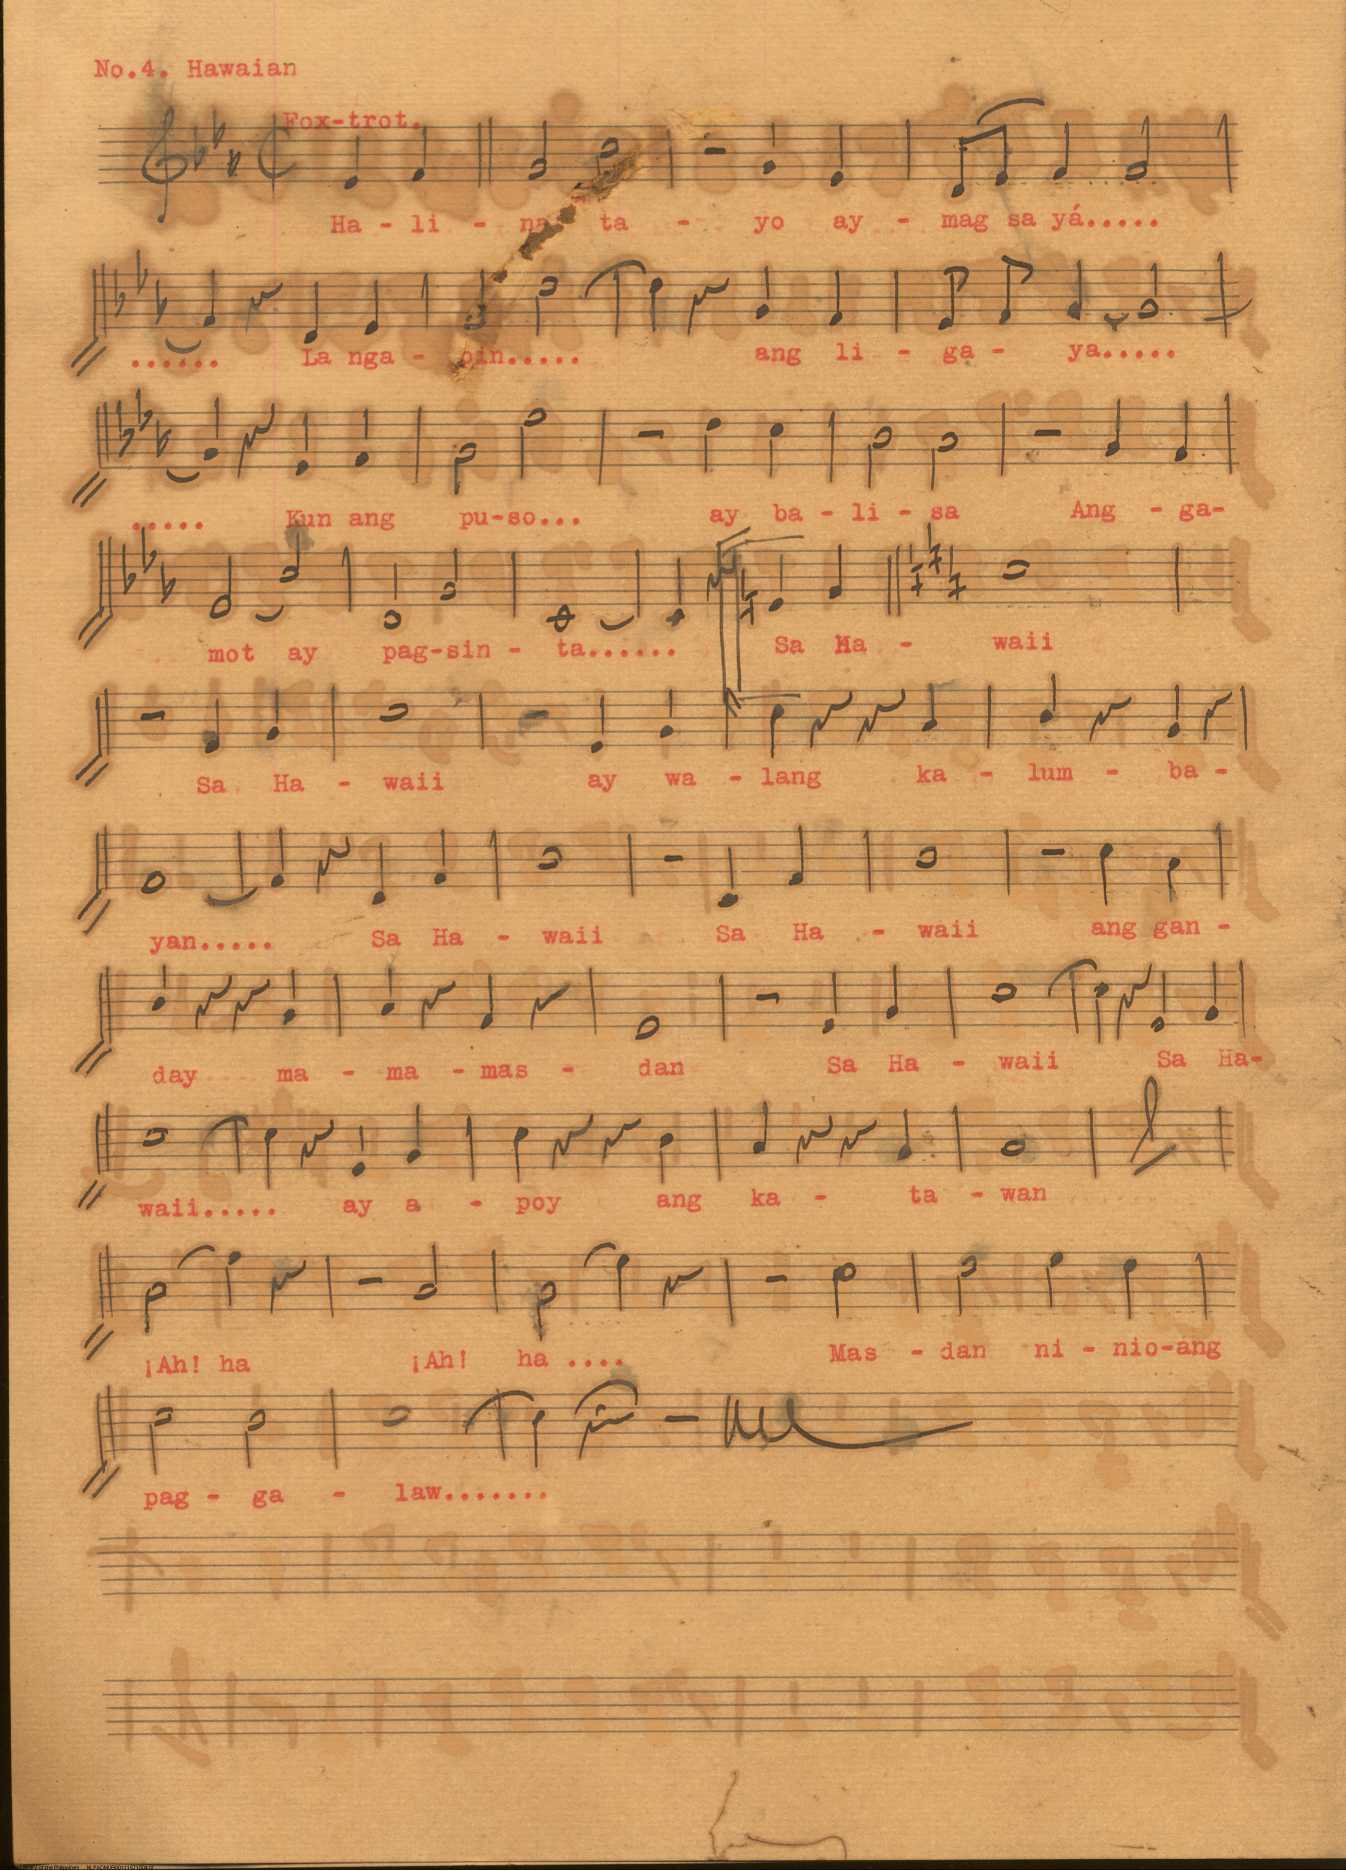 No.4. Hawaian
Fox-trot.
Ha - li - na ta - yo ay - mag sa yá.....
...... La nga - pin..... ang li - ga - ya.....
..... Kun ang pu-so... ay ba - li - sa Ang - ga-
mot ay pag-sin - ta...... Sa Ha - waii
Sa Ha - waii ay wa - lang ka - lum - ba -
yan..... Sa Ha - waii Sa Ha - waii ang gan -
day ma - ma - mas - dan Sa Ha - waii Sa Ha-
waii..... ay a - poy ang ka - ta - wan
¡Ah! ha ¡Ah! ha .... Mas - dan ni - nio-ang
pag - ga - law.......